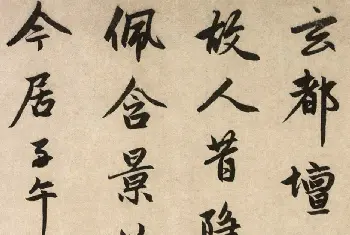 玄都壇
故人昔
佩含景
今居子午